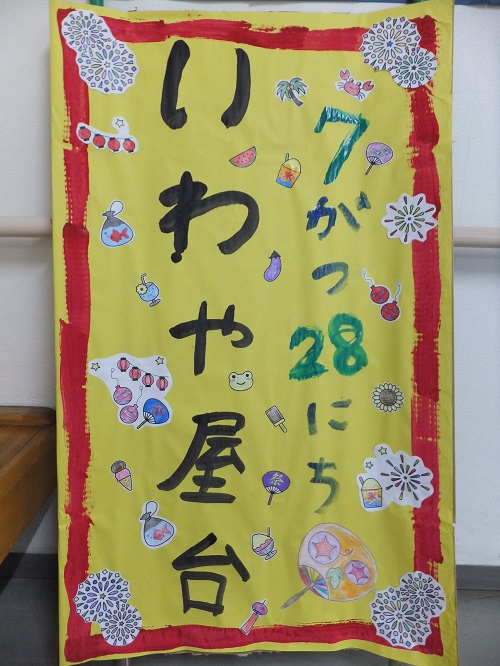 7がつ28にち
いわや屋台
祭